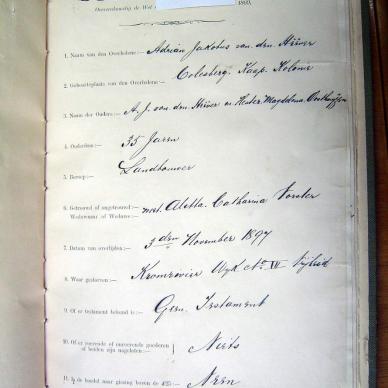 Overeenkomstig de Wet
1899,
1. Naam van den Overledene:— Adrian Jakobus van den Heever
2. Geboorteplaats van den Overledene:— Colesberg. Kaap. Kolonie
3. Naam der Ouders:— A. J. van den Heever en Hester Magdalena Oosthuizen
4. Ouderdom:— 35 Jaren
5. Beroep:— Landbouwer
6. Getrouwd of ongetrouwd:— met. Aletta. Catharina Vorster
Weduwnaar of Weduwe:
7. Datum van overlijden:— 3den November 1897
8. Waar gestorven:— Kromrevier Wyk No VII
9. Of er testament bekend is:— Geen Testament
10. Of er roerende of onroerende goederen
of beiden zijn nagelaten:— Niets
11. Is de boedel naar gissing boven de £15:— Neen